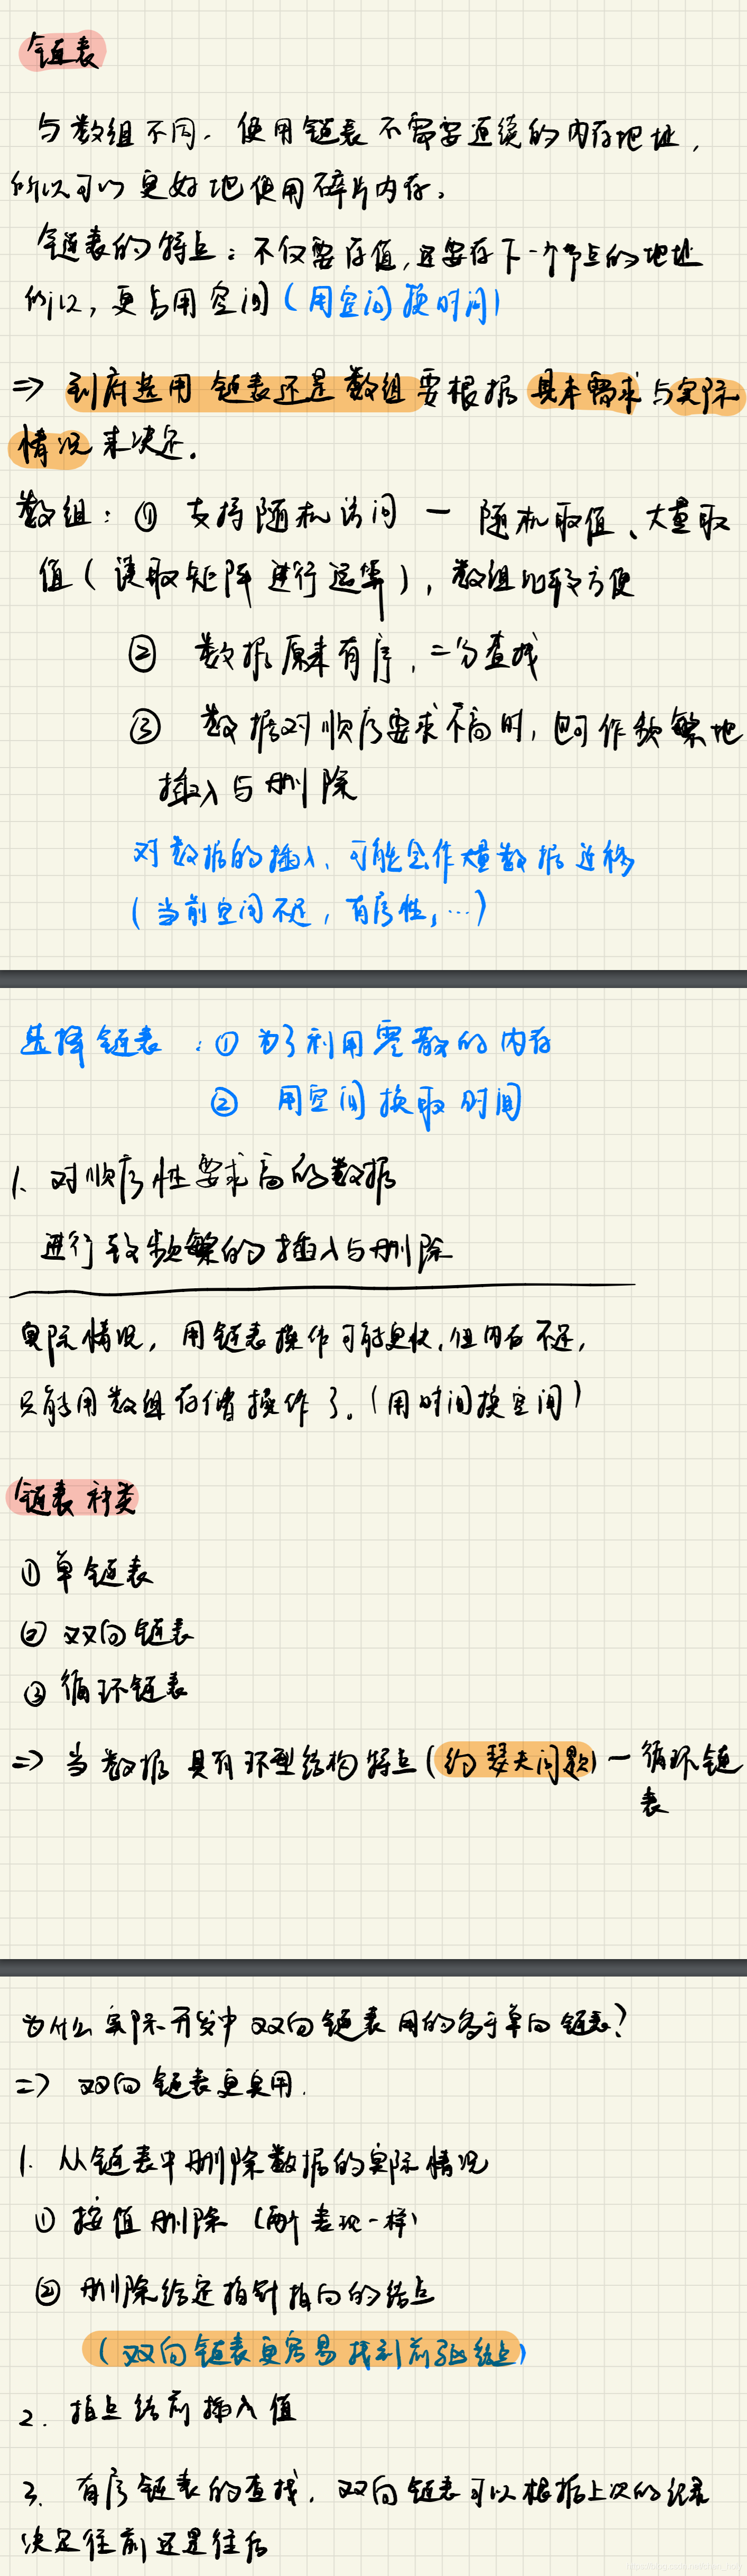 链表
与数组不同，使用链表不需要连续的内存地址，
所以可以更好地使用碎片内存。
链表的特点：不仅要存值，还要存下一个节点的地址
所以，更占用空间（用空间换时间）
=> 到底选用链表还是数组要根据具体需求与实际
情况来决定。
数组：① 支持随机访问 — 随机取值、大量取
值（读取矩阵进行运算），数组比较方便
② 数据原来有序，二分查找
③ 数据对顺序要求不高时，也可作频繁地
插入与删除
对数据的插入，可能会作大量数据迁移
（当前空间不足，有序性，…）
选择链表：① 为了利用零散的内存
② 用空间换取时间
1. 对顺序性要求高的数据
进行较频繁的插入与删除
实际情况，用链表操作可能更快，但内存不足，
只能用数组存储操作了。（用时间换空间）
链表种类
① 单链表
② 双向链表
③ 循环链表
=> 当数据具有环型结构特点（约瑟夫问题）— 循环链
表
为什么实际开发中双向链表用的多于单向链表？
=> 双向链表更实用.
1. 从链表中删除数据的实际情况
① 按值删除（两个表现一样）
② 删除给定指针指向的结点
（双向链表更容易找到前驱结点）
2. 指点结前插入值
3. 有序链表的查找，双向链表可以根据上次的结果
决定往前还是往后